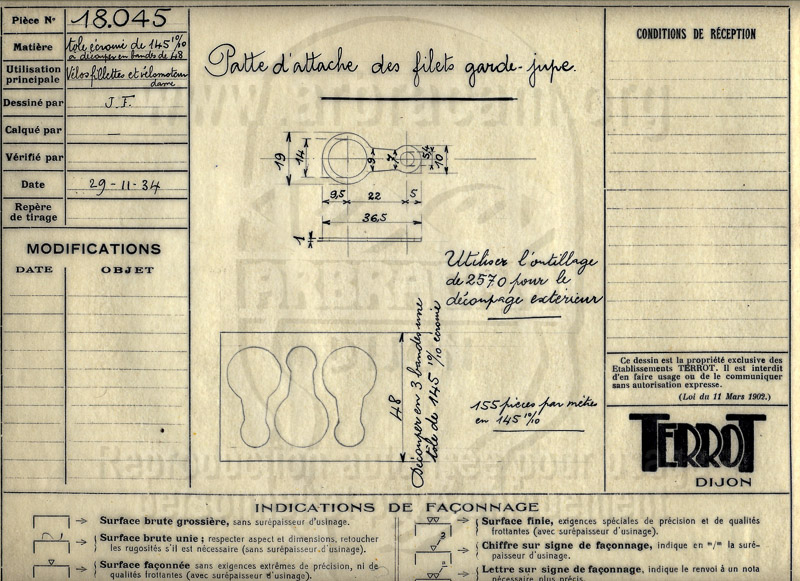 Pièce N° 18.045
Matière tôle écrouïe de 145 10/10
à découper en bandes de 48
Utilisation principale Vélos fillettes et vélomoteur
dame
Dessiné par J.F.
Calqué par —
Vérifié par
Date 29-11-34
Repère
de tirage
MODIFICATIONS
DATE OBJET
Patte d'attache des filets garde-jupe.
19 14 9 7 5,4 10
9,5 22 5
36,5
1
Utiliser l'outillage
de 2570 pour le
découpage extérieur
48
Découper en 3 bandes une
tôle de 145 10/10 écrouie
155 pièces par mètre
en 145 10/10
CONDITIONS DE RÉCEPTION
Ce dessin est la propriété exclusive des
Etablissements TERROT. Il est interdit
d'en faire usage ou de le communiquer
sans autorisation expresse.
(Loi du 11 Mars 1902.)
TERROT
DIJON
INDICATIONS DE FAÇONNAGE
Surface brute grossière, sans surépaisseur d'usinage.
Surface brute unie; respecter aspect et dimensions, retoucher
les rugosités s'il est nécessaire (sans surépaisseur d'usinage).
Surface façonnée sans exigences extrêmes de précision, ni de
qualités frottantes (avec surépaisseur d'usinage).
Surface finie, exigences spéciales de précision et de qualités
frottantes (avec surépaisseur d'usinage).
Chiffre sur signe de façonnage, indique en "/" la suré-
paisseur d'usinage.
Lettre sur signe de façonnage, indique le renvoi à un nota
nécessaire plus précis.